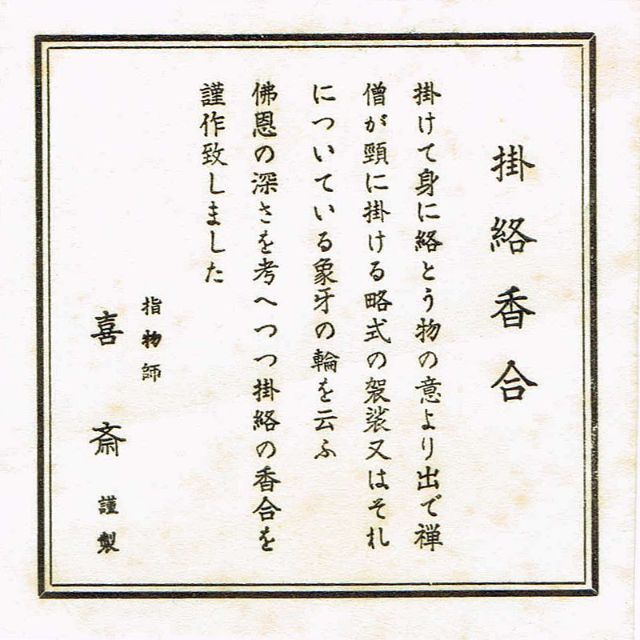 掛絡香合
掛けて身に絡とう物の意より出で禅
僧が頸に掛ける略式の袈裟又はそれ
についている象牙の輪を云ふ
佛恩の深さを考へつつ掛絡の香合を
謹作致しました
指物師
喜斎 謹製